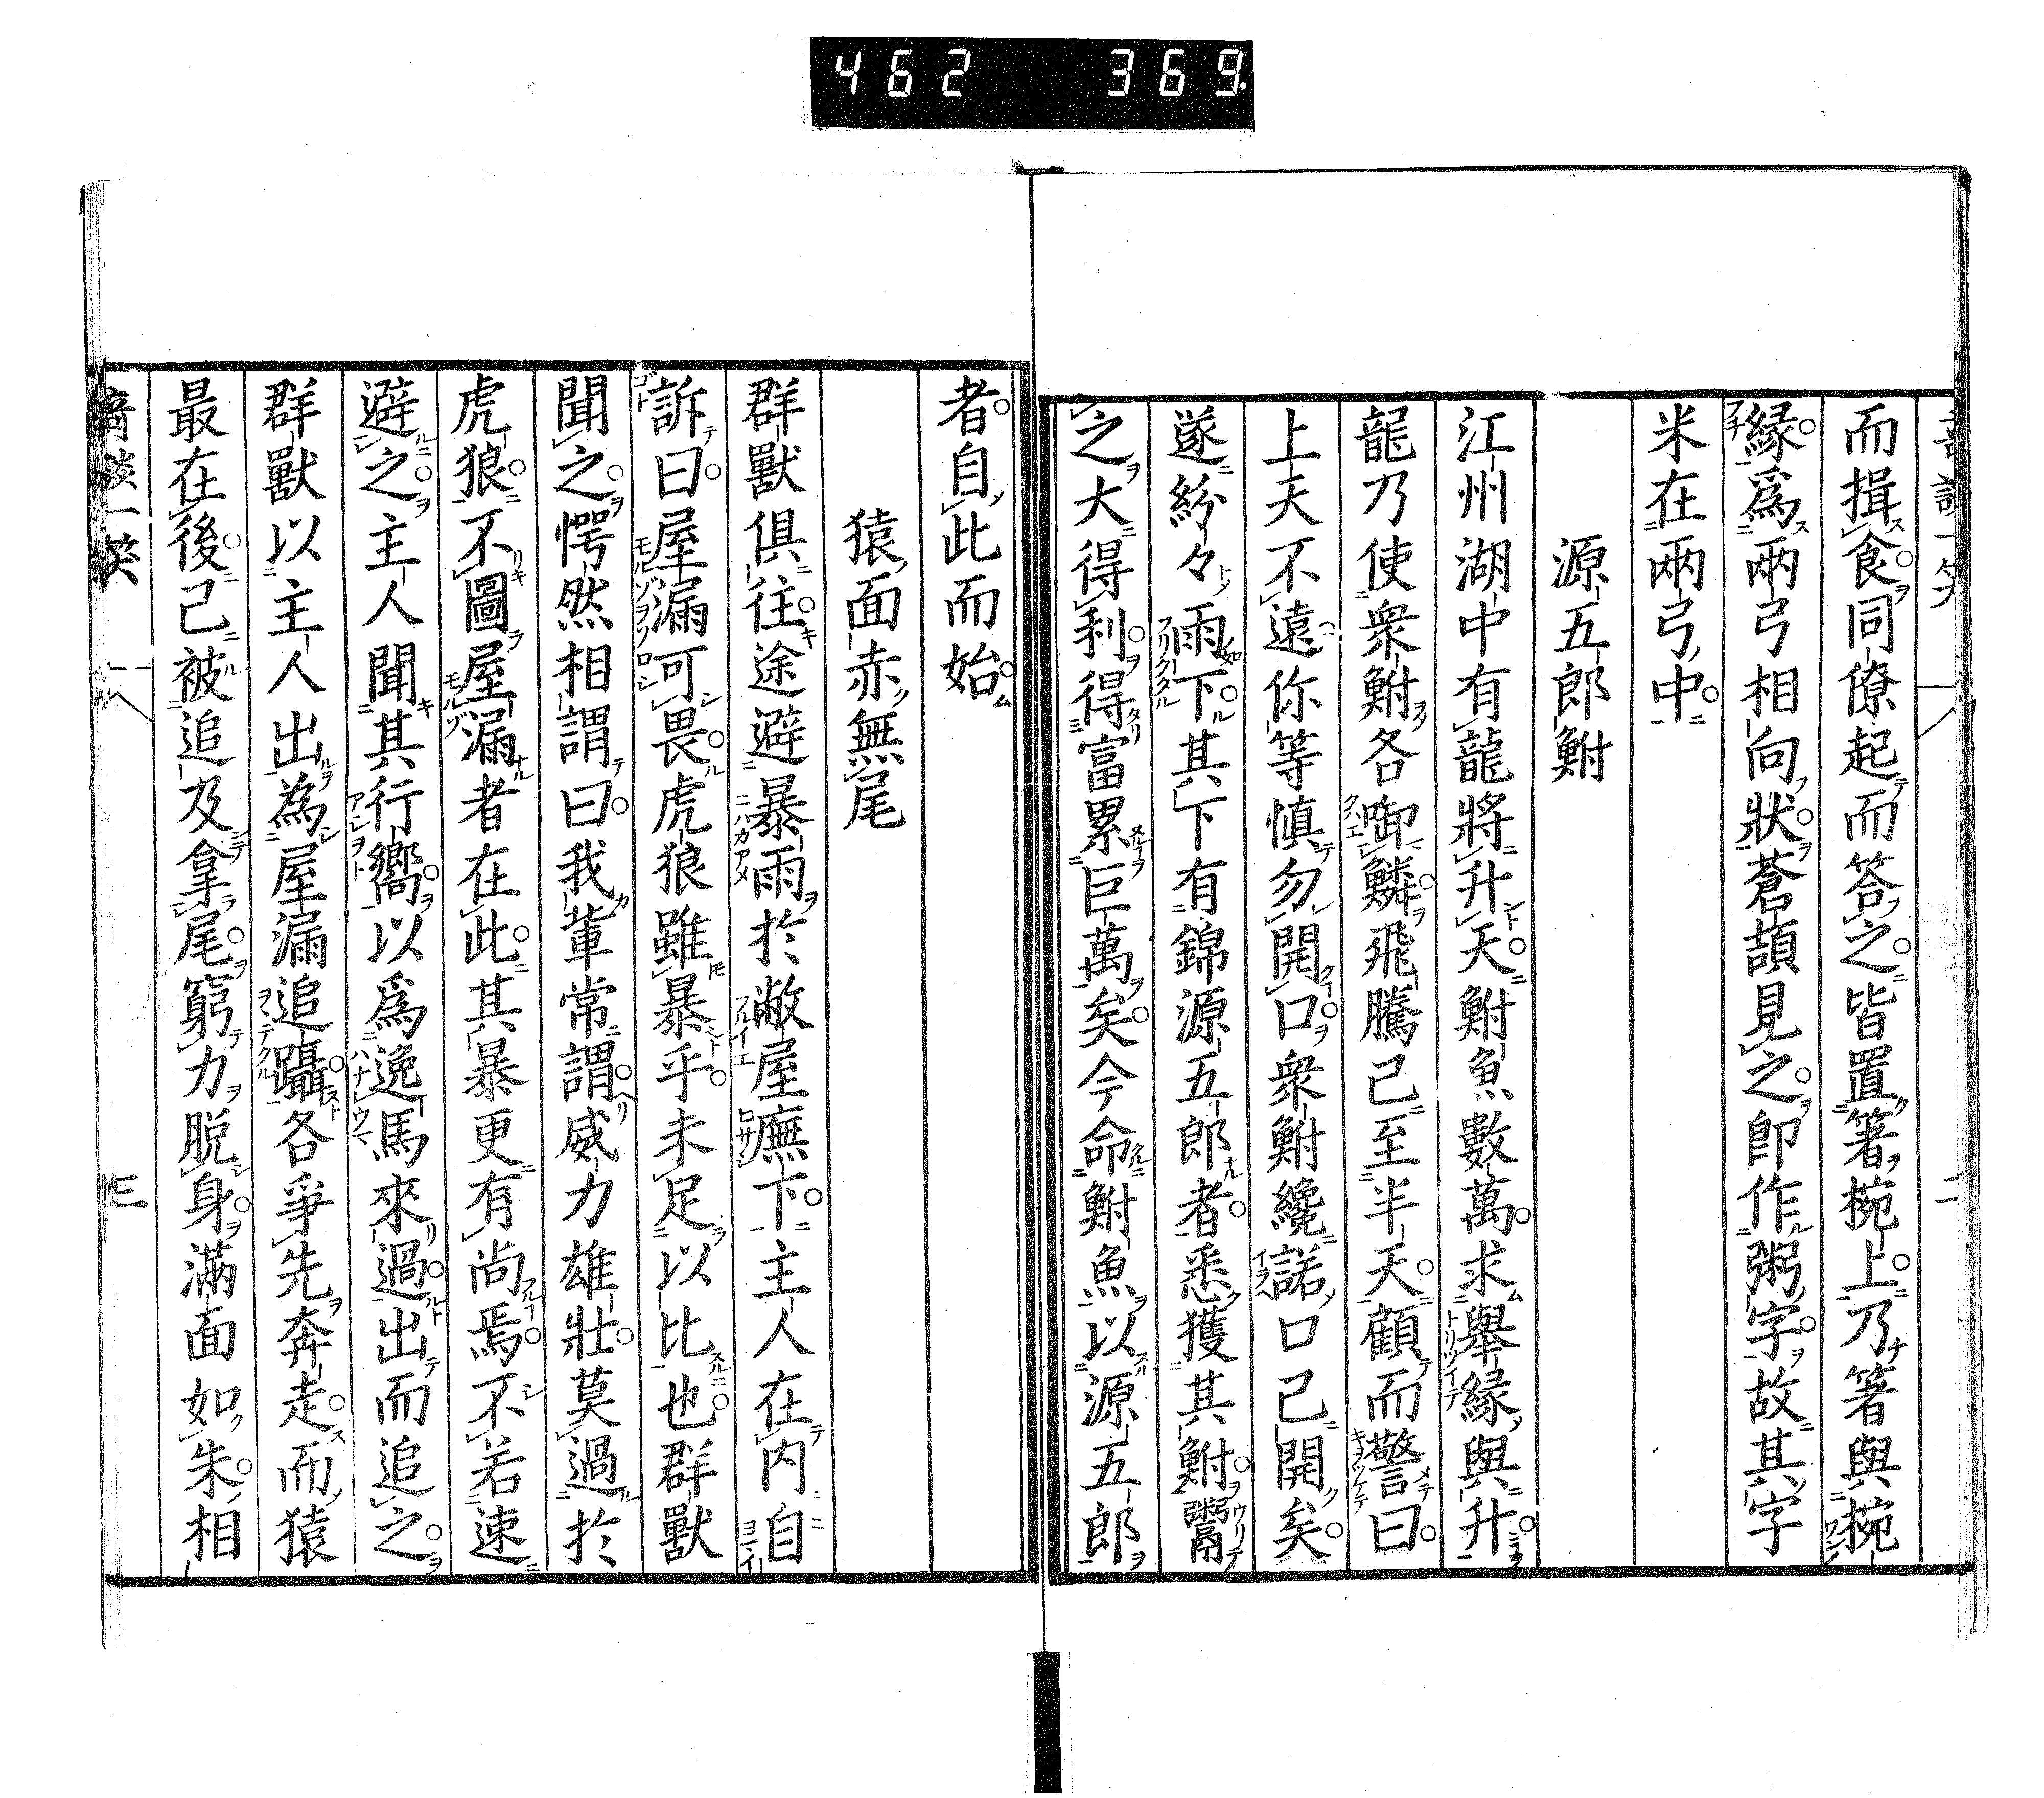 462 369.
而揖食同僚起而答之皆置箸椀上乃箸與椀
縁爲兩弓相向狀蒼頡見之即作粥字故其字
米在兩弓中
源五郎鮒
江州湖中有龍將升天鮒魚數萬求舉緣與升
龍乃使衆鮒各啣鱗飛騰已至半天顧而警曰
上天不遠你等慎勿開口衆鮒纔諾口已開矣
遂紛々雨下其下有錦源五郎者悉獲其鮒鬻
之大得利得富累巨萬矣今命鮒魚以源五郎
者自此而始
猿面赤無尾
群獸俱往途避暴雨於敝屋廡下主人在内自
訴曰屋漏可畏虎狼雖暴乎未足以比也群獸
聞之愕然相謂曰我輩常謂威力雄壯莫過於
虎狼不圖屋漏者在此其暴更有尚焉不若速
避之主人聞其行嚮以爲逸馬來過出而追之
群獸以主人出為屋漏追躡各爭先奔走而猿
最在後已被追及拿尾窮力脱身滿面如朱相
奇談一笑 三